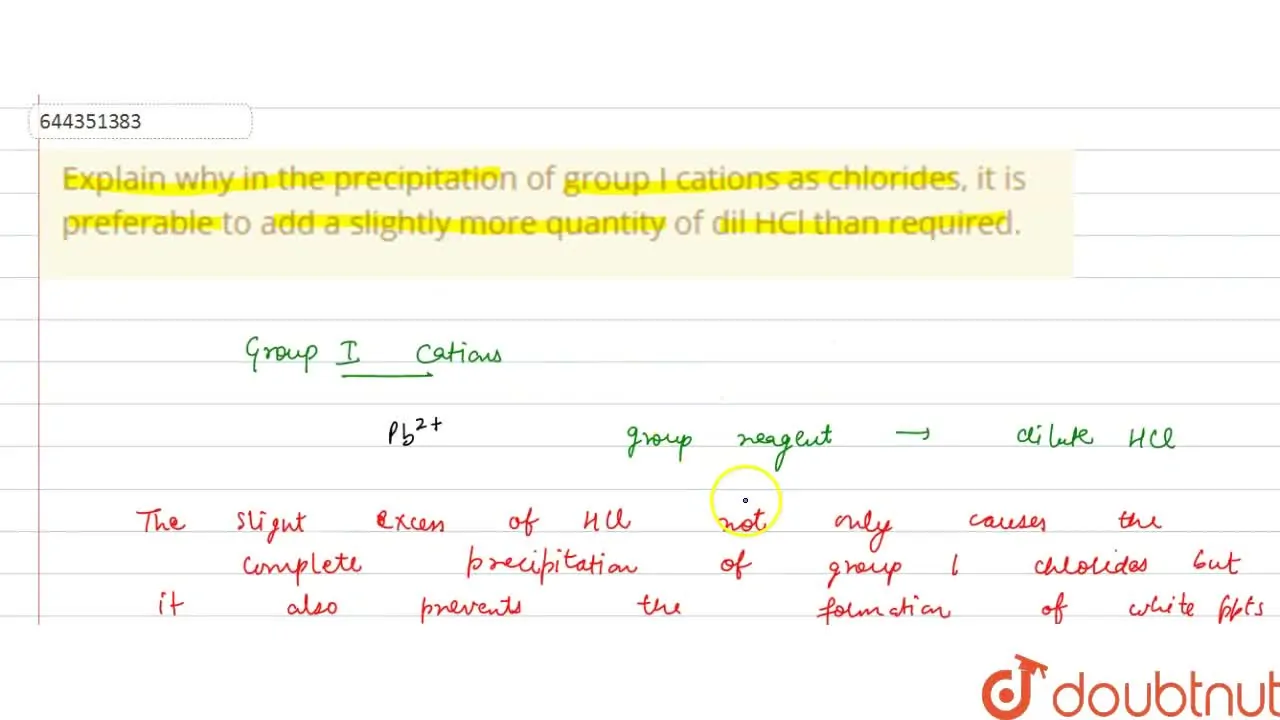 644351383
Explain why in the precipitation of group I cations as chlorides, it is
preferable to add a slightly more quantity of dil HCl than required.
Group I Cations
Pb²⁺ group reagent → dilute HCl
The slight excess of HCl not only causes the
complete precipitation of group I chlorides but
it also prevents the formation of white ppts
doubtnut